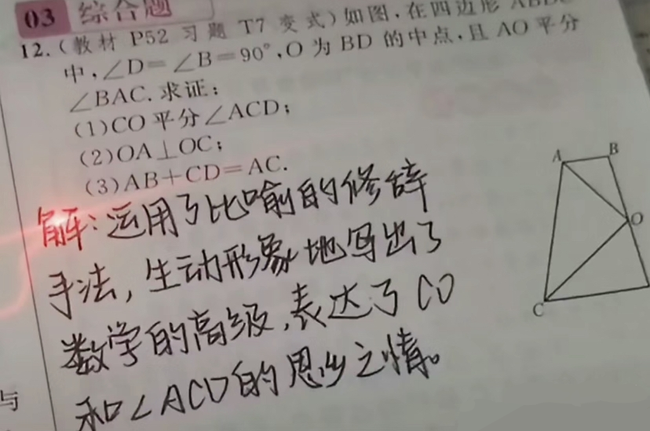 03 综合题
12.(教材 P52 习题 T7 变式)如图,在四边形
中,∠D=∠B=90°,O 为 BD 的中点,且 AO 平分
∠BAC.求证:
(1)CO 平分∠ACD;
(2)OA⊥OC;
(3)AB+CD=AC.
解:运用了比喻的修辞
手法,生动形象地写出了
数学的高级,表达了CO
和∠ACD的思乡之情。
A B
O
C
与